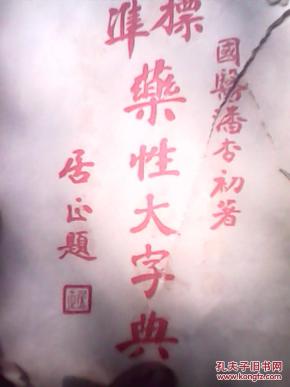 國醫潘杏初著
標準藥性大字典
居正題
孔夫子旧书网